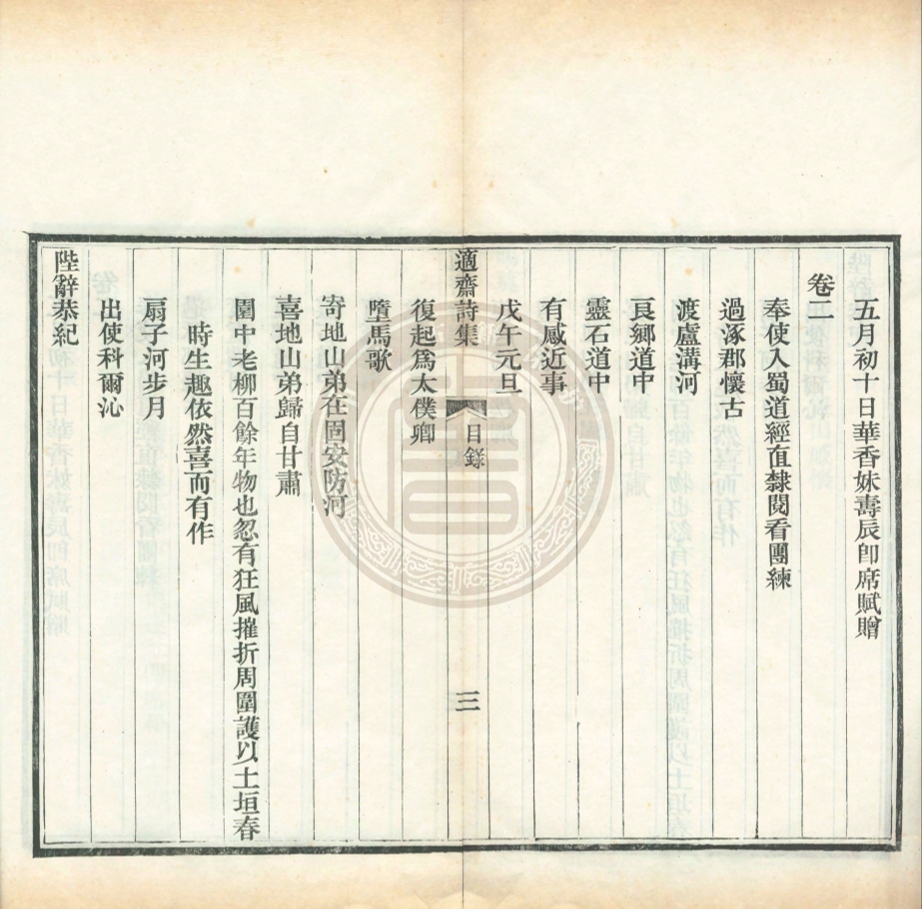 五月初十日華香妹壽辰卽席賦贈
卷二
奉使入蜀道經直隸閱看團練
過涿郡懷古
渡盧溝河
良鄉道中
靈石道中
有感近事
戊午元旦
適齋詩集 目錄 三
復起爲太僕卿
墮馬歌
寄地山弟在固安防河
喜地山弟歸自甘肅
園中老柳百餘年物也忽有狂風摧折周圍護以土垣春
時生趣依然喜而有作
扇子河步月
出使科爾沁
陛辭恭紀